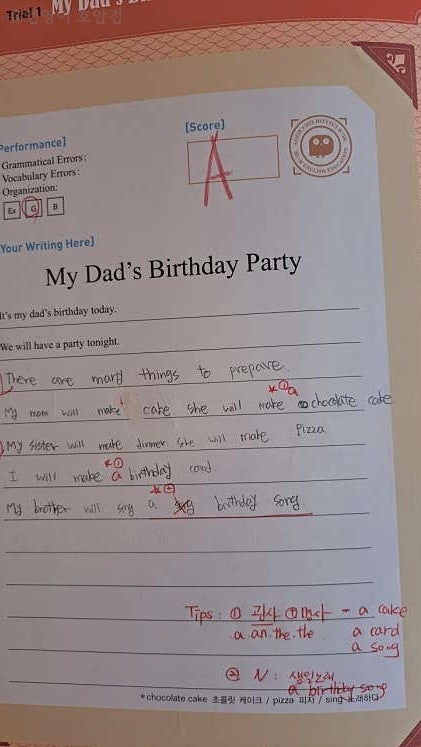 Trial 1 My Dad's
Performance]
[Score]
Grammatical Errors:
Vocabulary Errors:
Organization:
A
Ex G B
Your Writing Here]
My Dad's Birthday Party
It's my dad's birthday today.
We will have a party tonight.
There are many things to prepare.
My mom will make cake she will make a chocolate cake
My sister will make dinner she will make pizza.
I will make a birthday card.
My brother will sing a birthday song.
Tips: ① 관사 ⊕ 명사 - a cake
a an. the. the. a card
a song
② N : 생일노래
a birthday song
* chocolate cake 초콜릿 케이크 / pizza 피자 / sing 노래하다